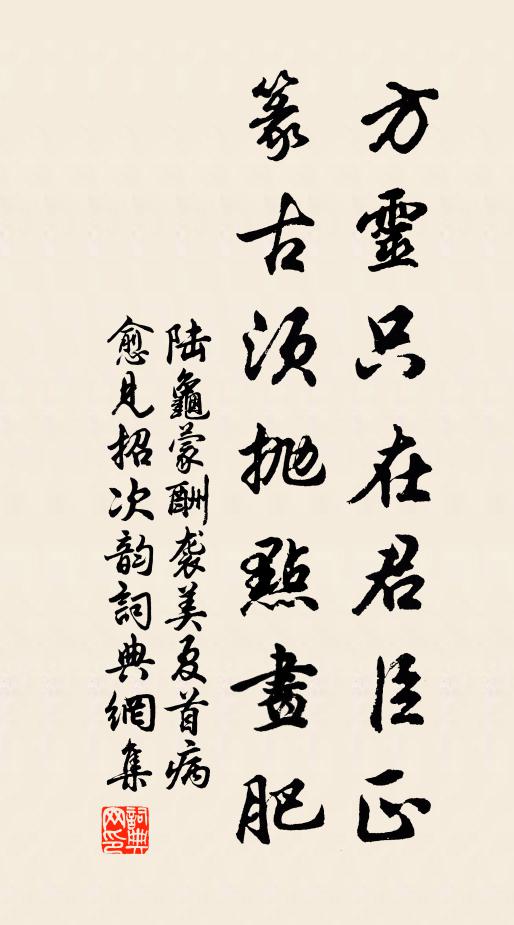 方靈只在君臣正
篆古須拋點畫肥
陆龜蒙酬袭美夏首病
愈見招次韵詞典網集
詞典